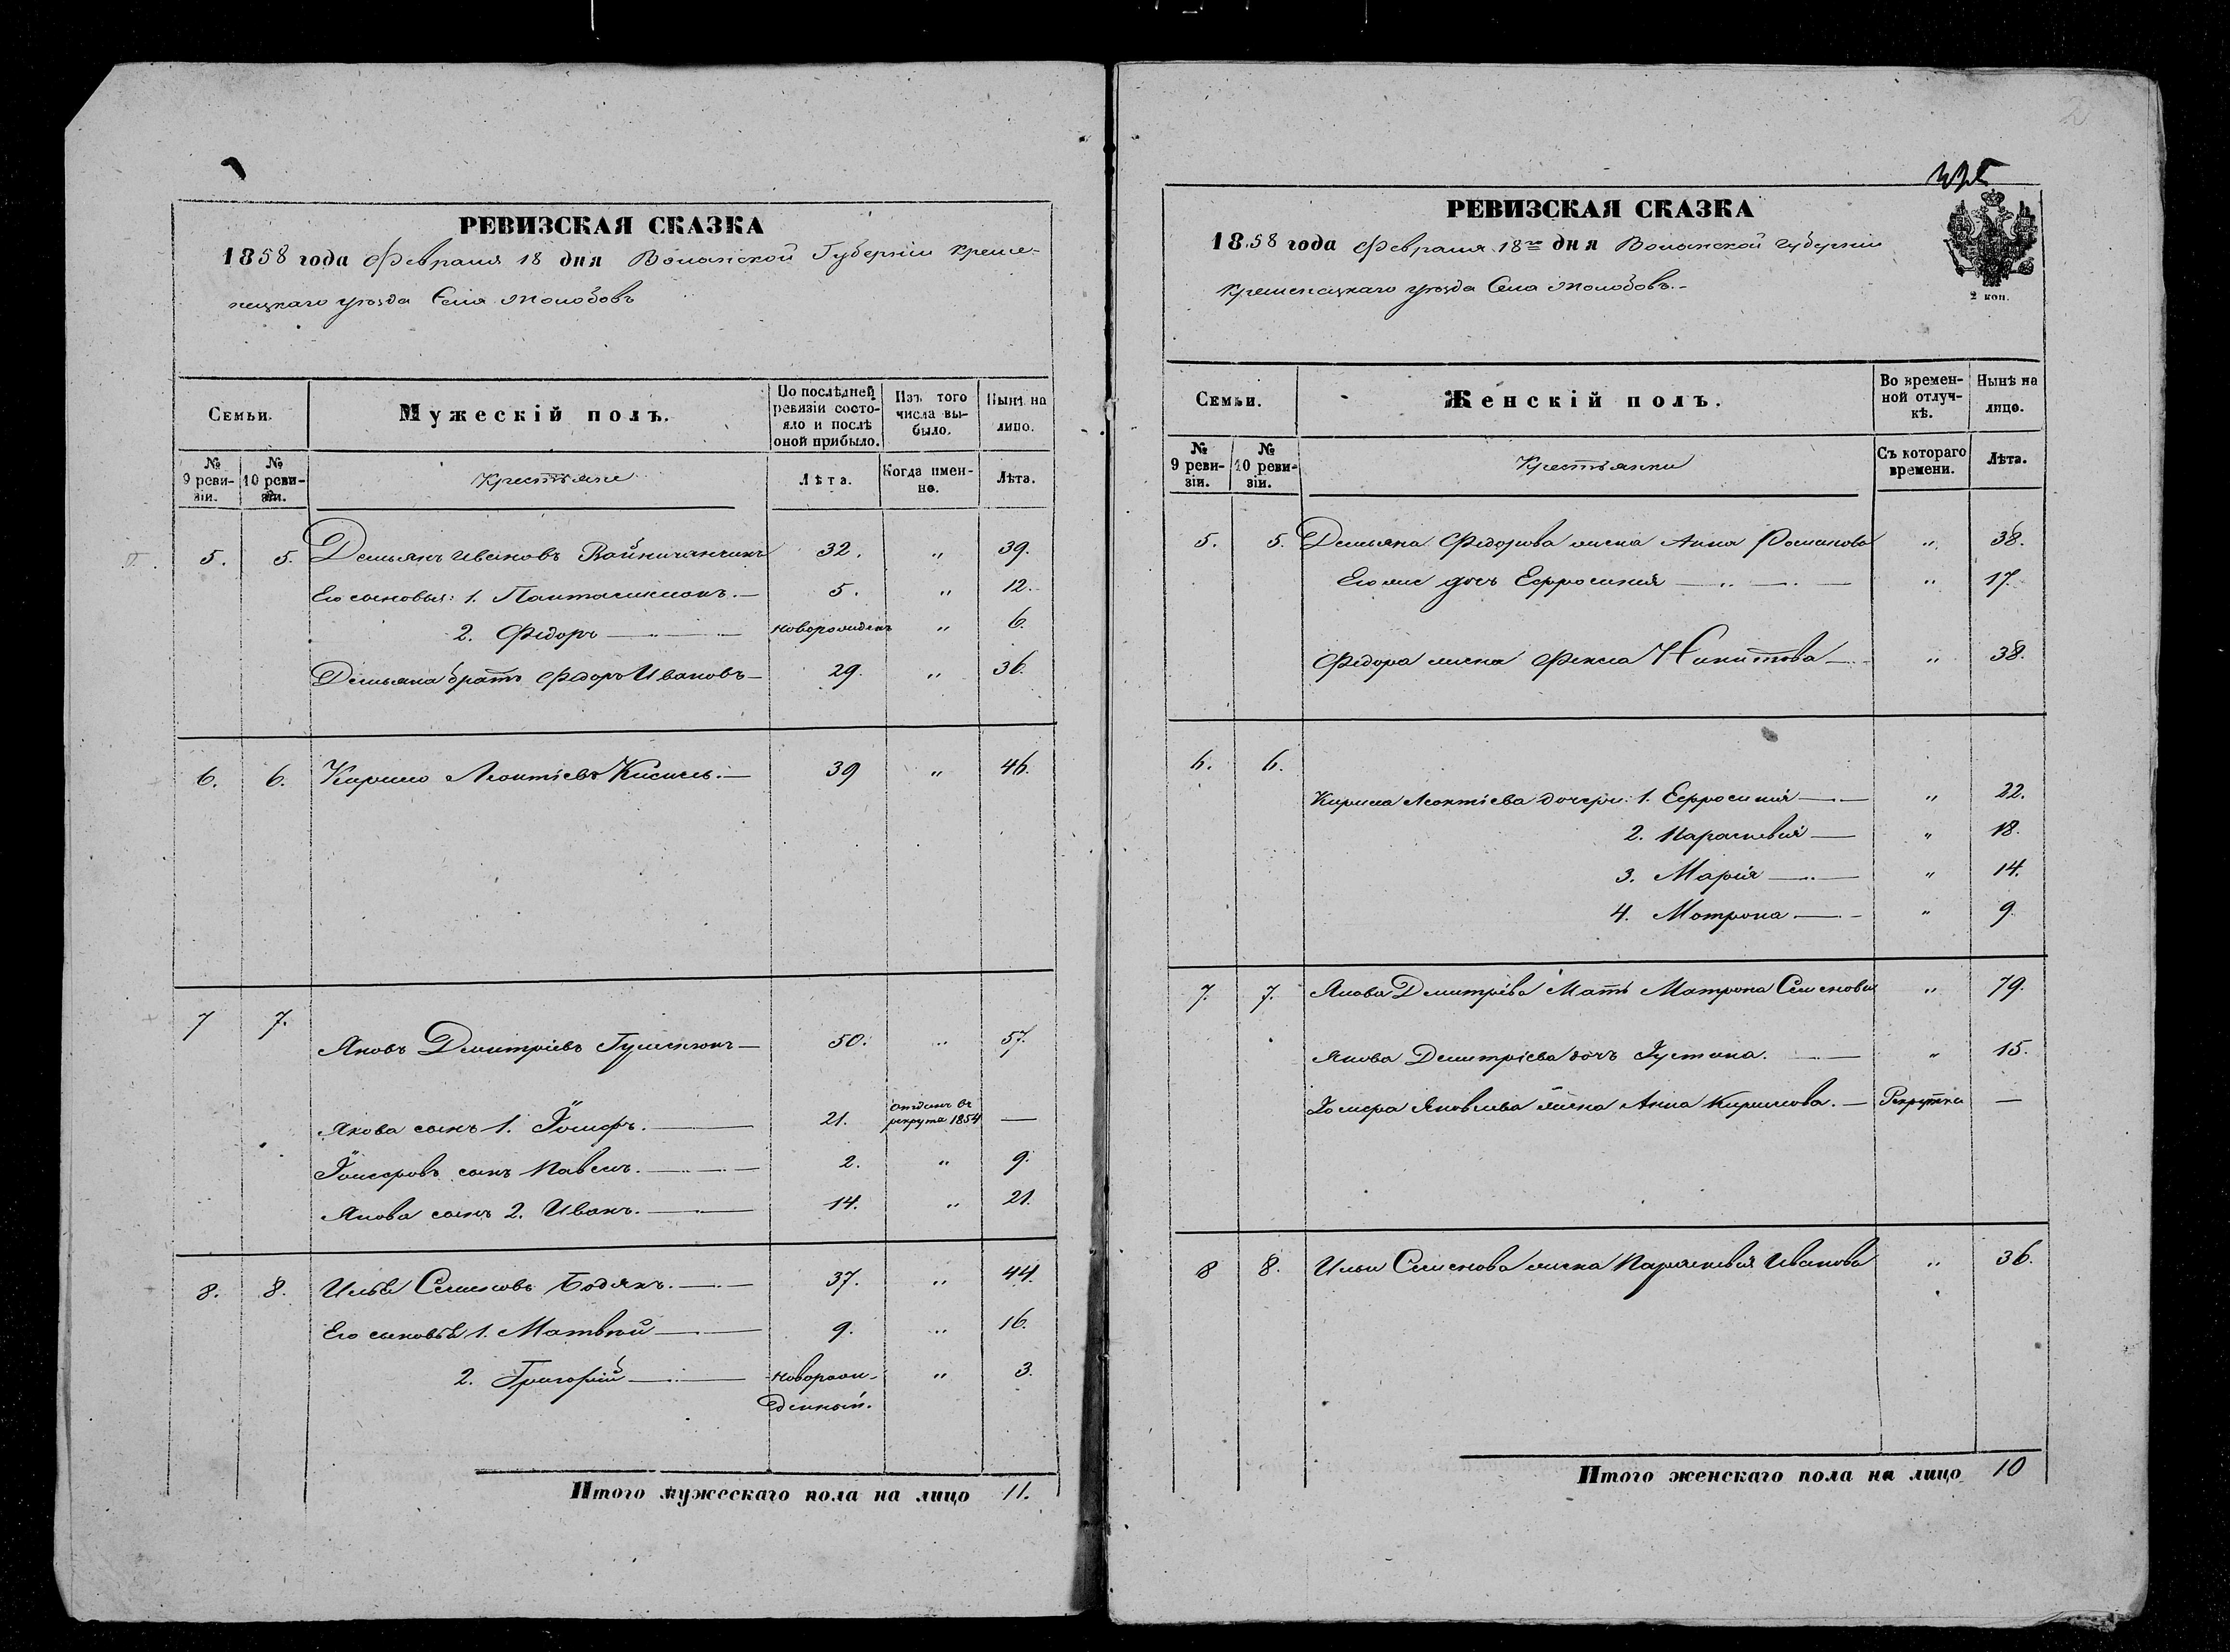 РЕВИЗСКАЯ СКАЗКА
1858 года Февраля 18 дня Волынской Губерніи Креме-
нецкаго уѣзда Села Жолобовъ
Семьи.
Мужескій полъ.
По послѣдней ревизіи состояло и послѣ оной прибыло.
Изъ того числа выбыло.
Нынѣ на лицо.
№ 9 ревизіи.
№ 10 ревизіи.
Крестьяне
Лѣта.
Когда именно.
Лѣта.
5. 5. Демьянъ Ивановъ 32. " 39.
Его сыновья: 1. Пантелимонъ.— 5. " 12.
2. Федоръ — новорожденъ " 6.
Демьяна братъ Федоръ Ивановъ— 29. " 36.
6. 6. Кирило Леонтіевъ Кисиль.— 39 " 46.
7 7.
Яковъ Дмитріевъ — 50. " 57.
Якова сынъ 1. — 21. отданъ въ рекрута 1854 —
сынъ Павелъ.— 2. " 9.
Якова сынъ 2. Иванъ.— 14. " 21.
8. 8. Илья Семеновъ Бодякъ.— 37. " 44.
Его сыновья 1. Матвѣй — 9. " 16.
2. Григорій — новорож- " 3.
денный.
Итого мужескаго пола на лицо 11.
РЕВИЗСКАЯ СКАЗКА
1858 года Февраля 18го дня Волынской Губерніи
Кременецкаго уѣзда Села Жолобовъ.-
2 коп.
Семьи.
Женскій полъ.
Во временной отлучкѣ.
Нынѣ на лицо.
№ 9 ревизіи.
№ 10 ревизіи.
Крестьянки
Съ котораго времени.
Лѣта.
5. 5. Демьяна Федорова жена Анна Романова " 38.
Его же дочь Ефросинія — " 17.
Федора жена Фекла Никитова — " 38.
6. 6.
Кирила Леонтіева дочери: 1. Ефросинія — " 22.
2. Параскевія — " 18.
3. Марія — " 14.
4. Мотрона — " 9.
7. 7. Якова Дмитріева Мать Матрона Семенова " 79.
Якова Дмитріева дочь Іустина. — " 15.
Яковлева жена Анна Кирилова.— Рекрутка —
8 8. Ильи Семенова жена Параскевія Иванова " 36.
Итого женскаго пола на лицо 10